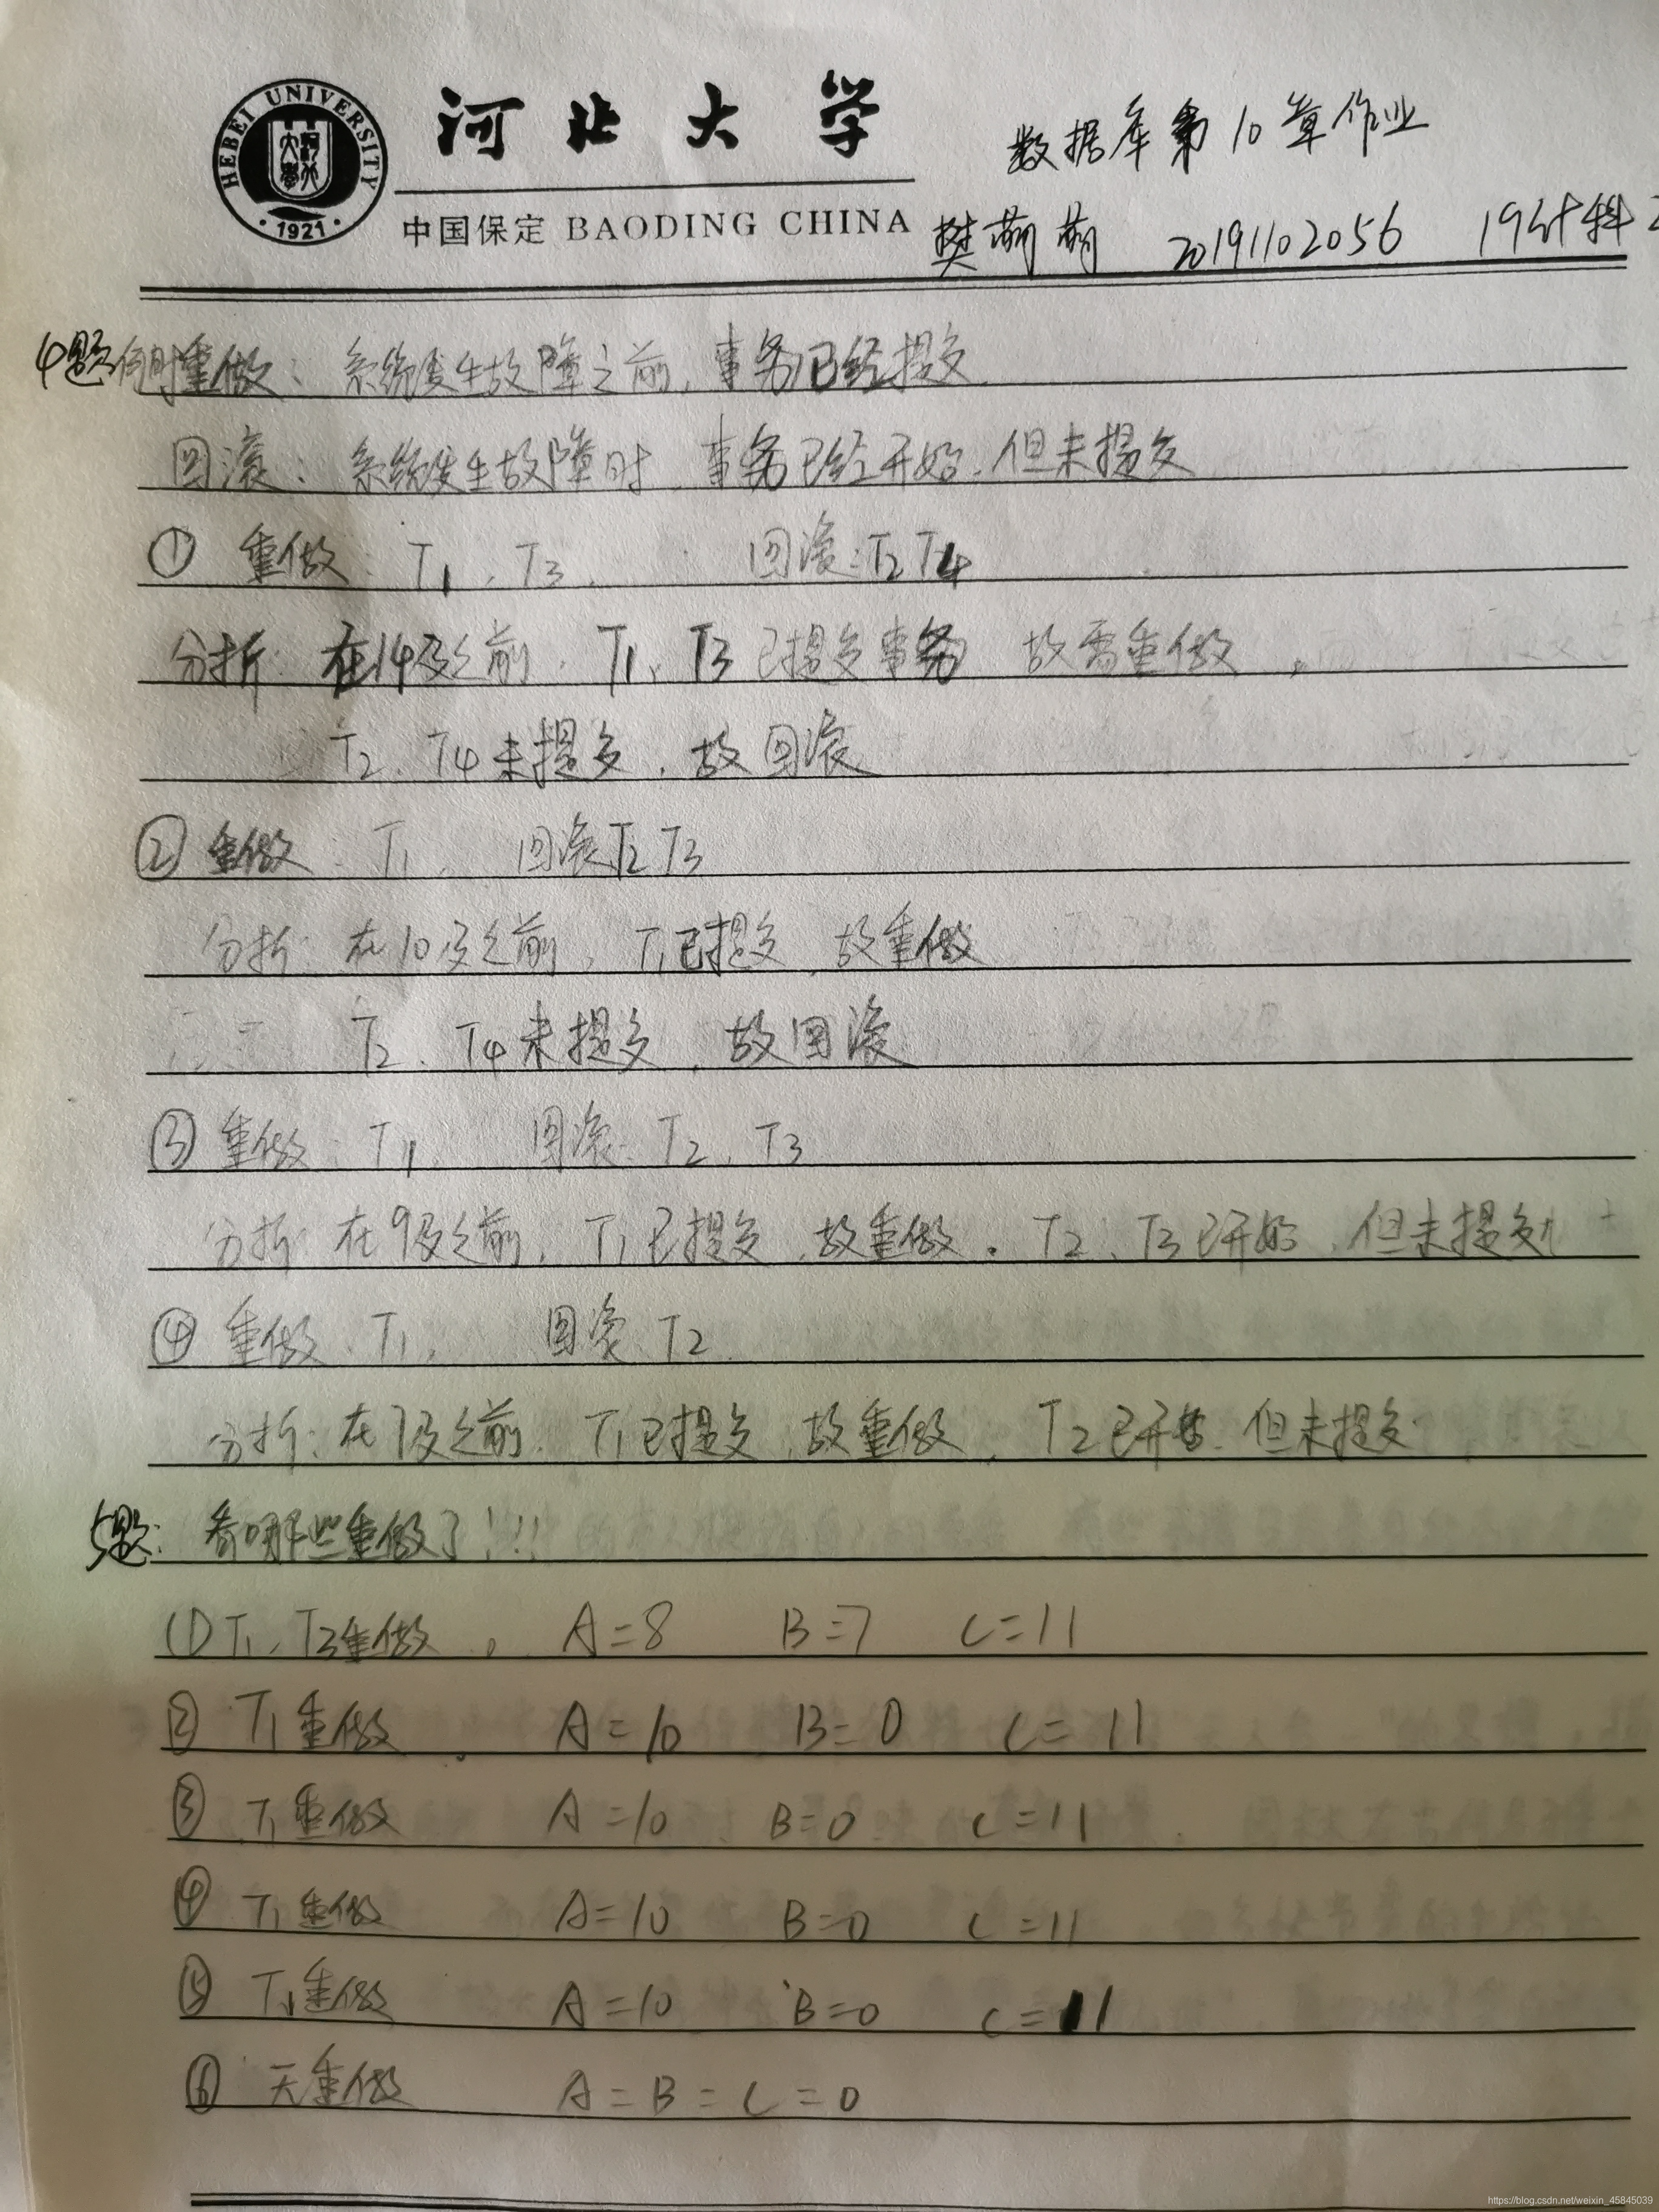 HEBEI UNIVERSITY
·1921·
河北大学
数据库第10章作业
中国保定 BAODING CHINA
樊萌萌 20191102056 19计科
4题 重做: 系统发生故障之前, 事务已经提交.
回滚: 系统发生故障时, 事务已经开始, 但未提交
① 重做: T1, T3. 回滚: T2 T4
分析: 在14及之前, T1, T3已提交事务 故需重做,
T2, T4未提交, 故回滚
② 重做: T1, 回滚T2 T3
分析: 在10及之前, T1已提交, 故重做
T2、T4未提交, 故回滚
③ 重做: T1, 回滚: T2、T3
分析: 在9及之前, T1已提交, 故重做. T2、T3已开始, 但未提交
④ 重做: T1, 回滚: T2.
分析: 在7及之前, T1已提交, 故重做, T2已开始, 但未提交
5题: 看哪些重做了!!!
(1) T1, T3重做. A=8 B=7 C=11
② T1重做. A=10 B=0 C=11
③ T1重做 A=10 B=0 C=11
④ T1重做 A=10 B=0 C=11
⑤ T1重做 A=10 B=0 C=11
⑥ 无重做 A=B=C=0
https://blog.csdn.net/weixin_45845039